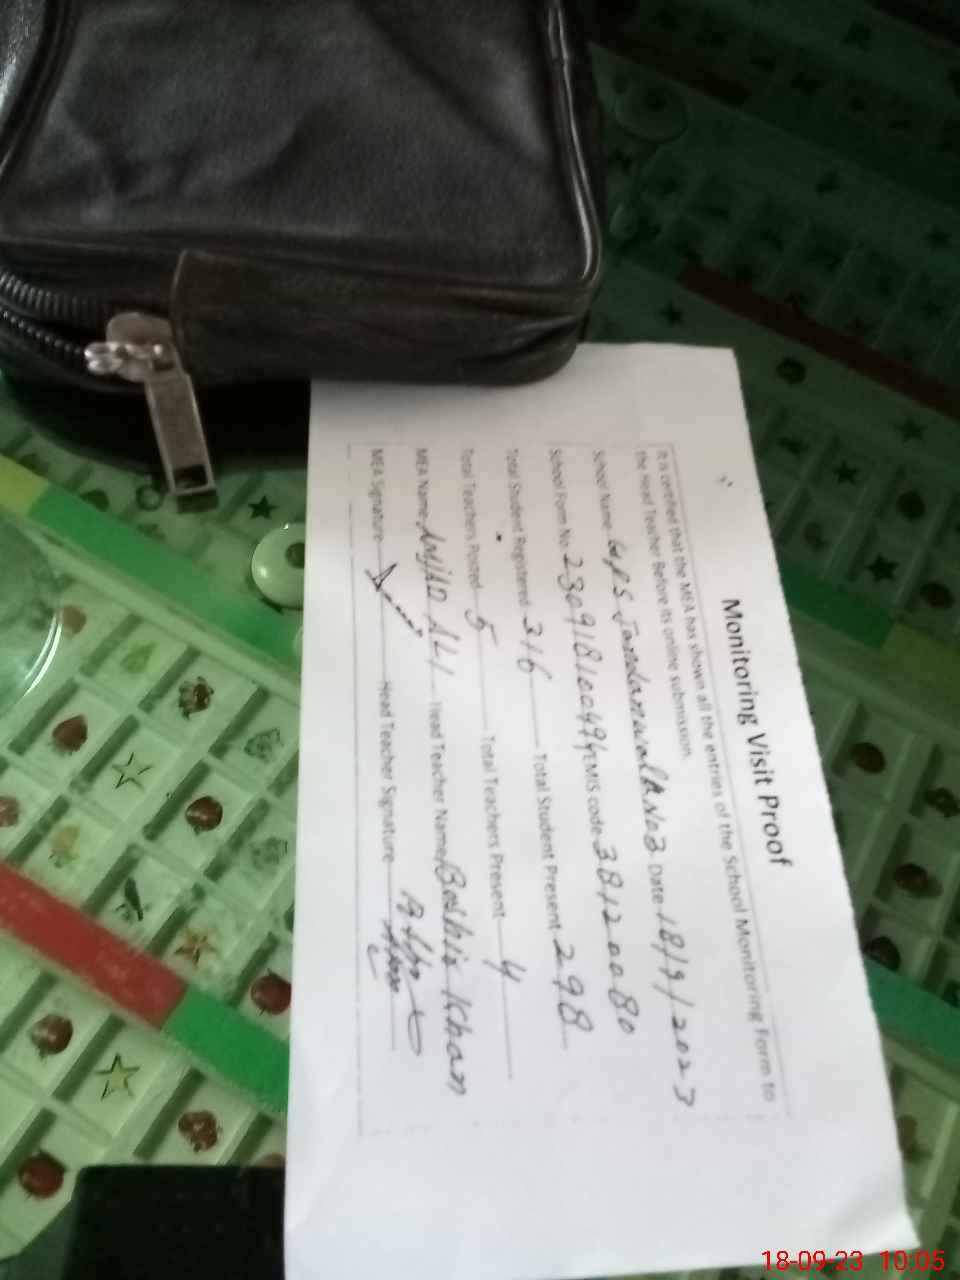 Monitoring Visit Proof
It is certified that the MEA has shown all the entries of the School Monitoring Form to
the Head Teacher Before its online submission.
School Name GPS No 3 Date 18/9/2023
School Form No 23091810049 EMIS code 38120080
Total Student Registered 316 Total Student Present 298
Total Teachers Posted 5 Total Teachers Present 4
MEA Name AMJAD ALI Head Teacher Name Bashir Khan
MEA Signature Head Teacher Signature
18-09-23 10:05